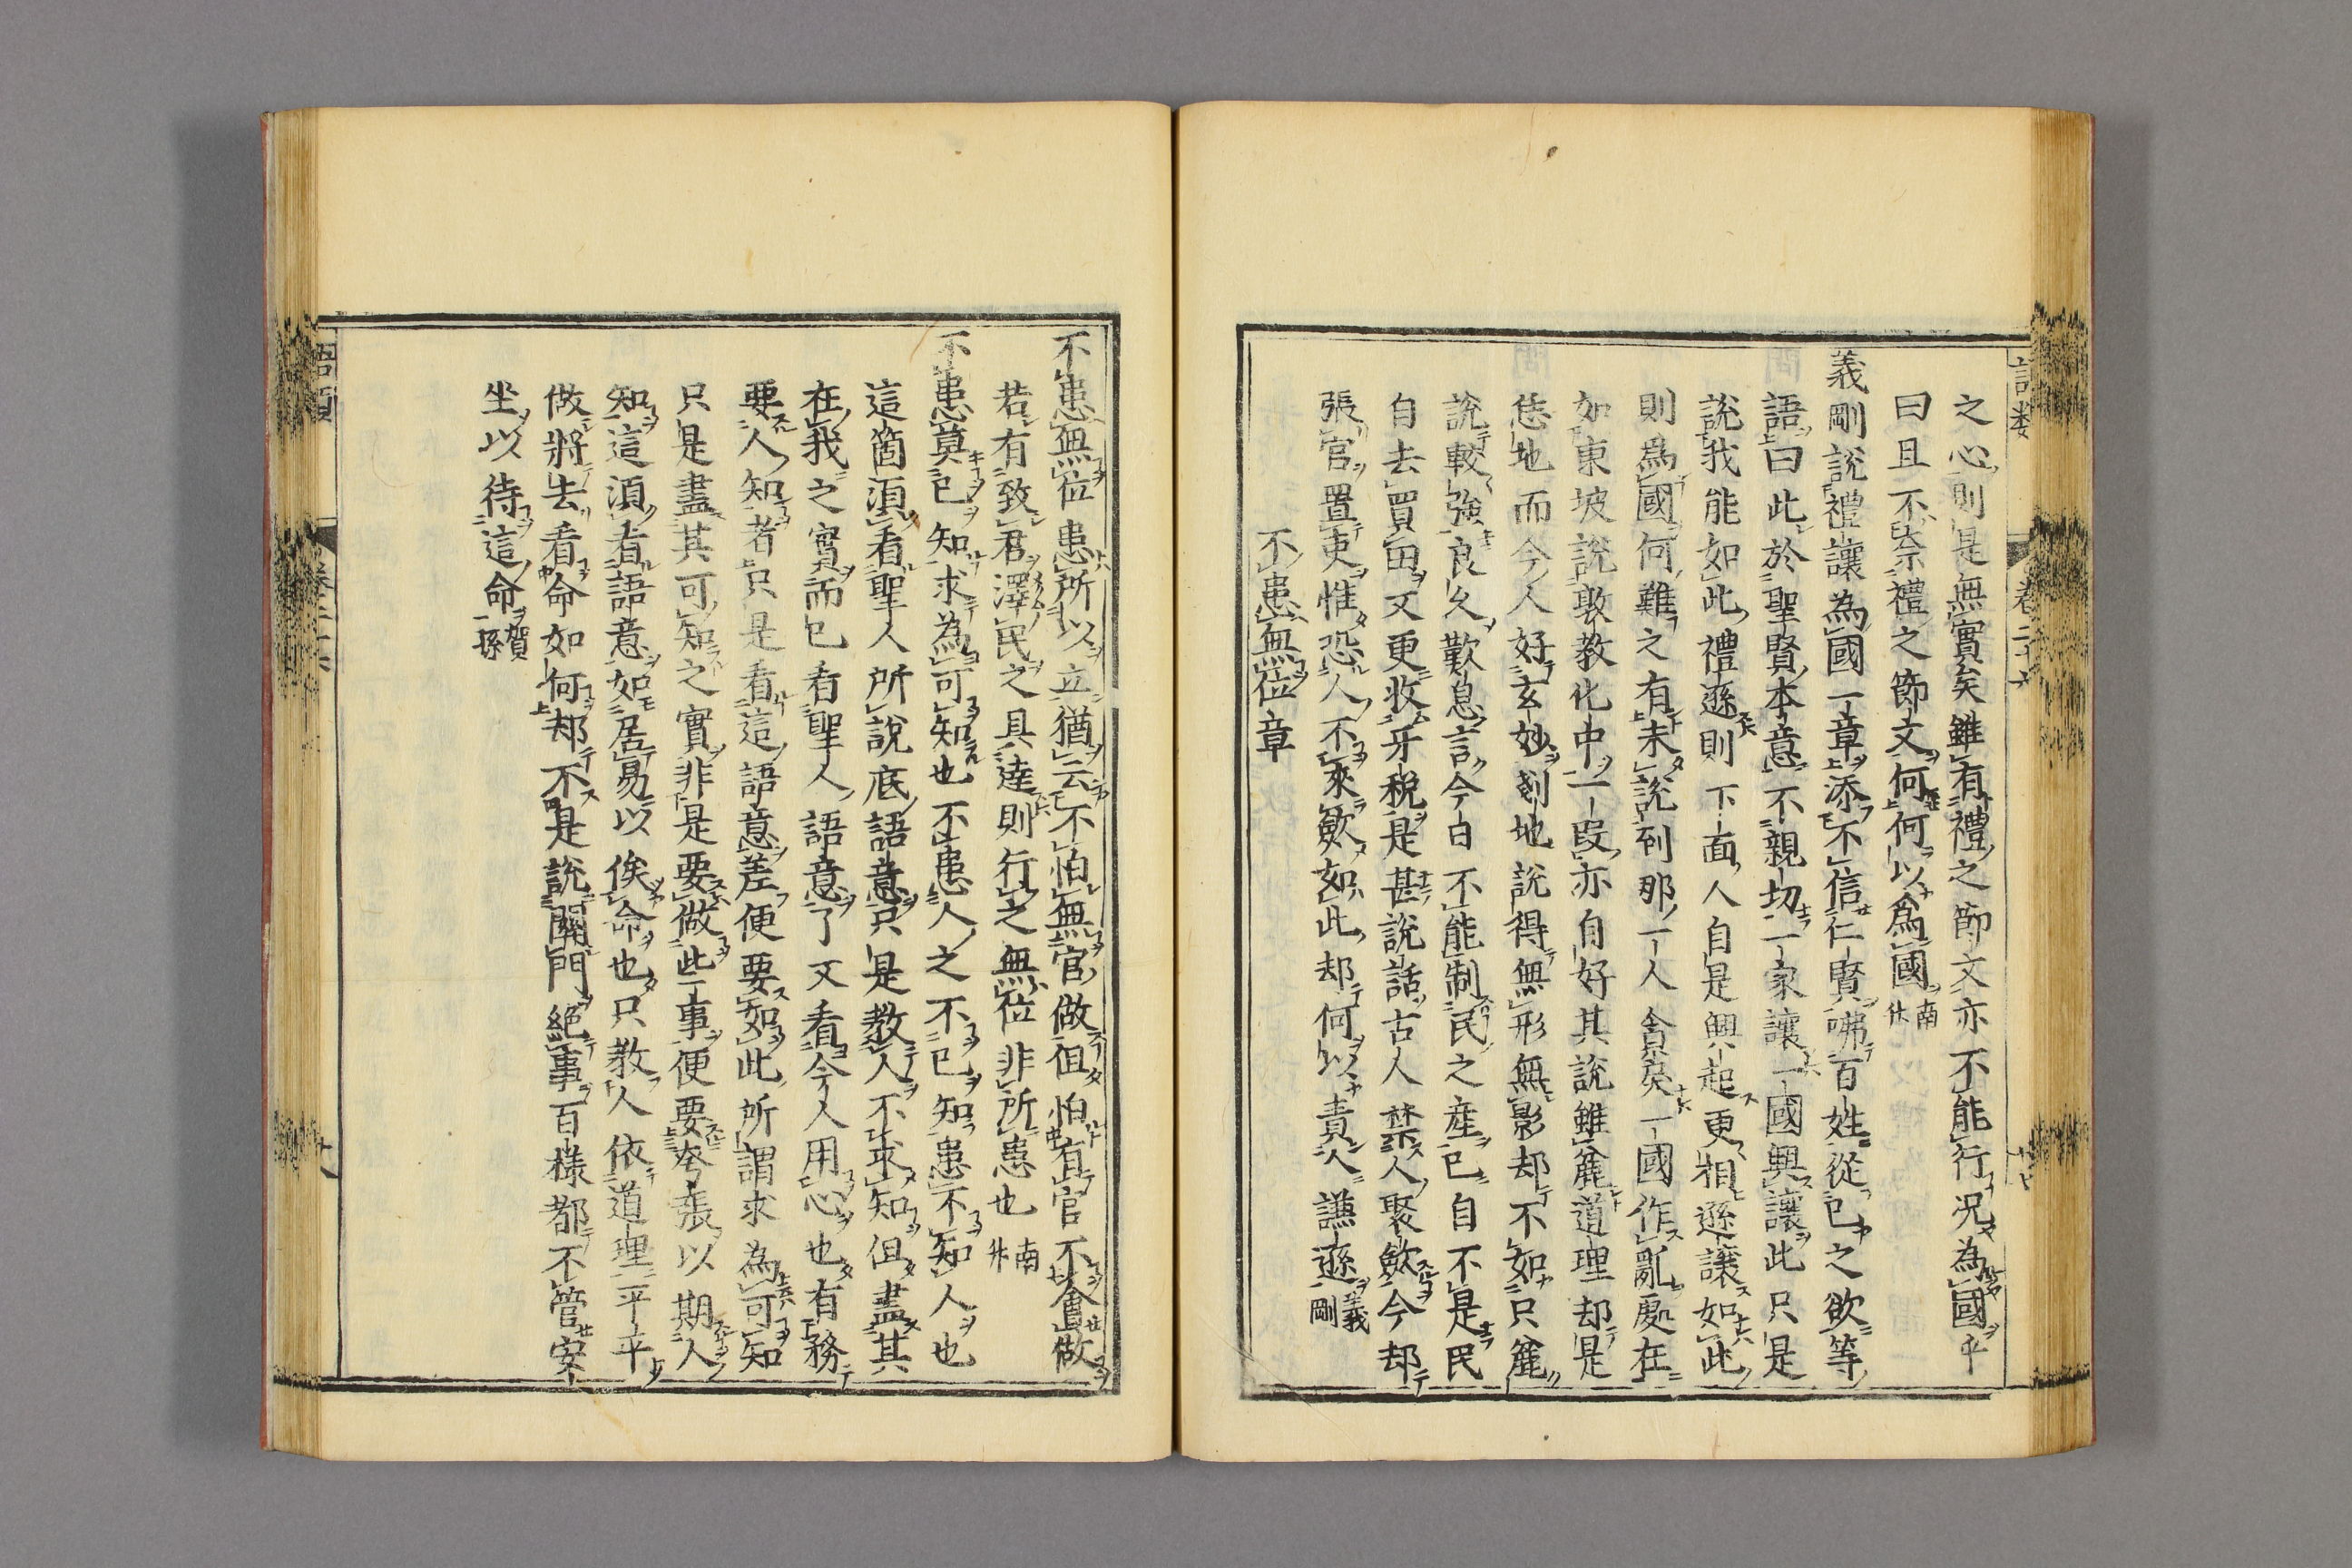 之心則是無實矣雖有禮之節文亦不能行況為國乎
曰且不柰禮之節文何何以為國南升
義剛說禮讓為國一章添不信仁賢咈百姓從已之欲等
語曰此於聖賢本意不親切一家讓一國興讓此只是
說我能如此禮遜則下面人自是興起更相遜讓如此
則為國何難之有未說到那一人貪戾一國作亂處在
如東坡說敦教化中一段亦自好其說雖麄道理却是
恁地而今人好玄妙剗地說得無形無影却不如只麄
說較強良久歎息言今日不能制民之產已自不是民
自去買田又更收牙稅是甚說話古人禁人聚歛今却
張官置吏惟恐人不來歛如此却何以責人謙遜義剛
不患無位章
不患無位患所以立猶云不怕無官做但怕有官不會做
若有致君澤民之具達則行之無位非所患也南升
不患莫已知求為可知也不患人之不已知患不知人也
這箇須看聖人所說底語意只是教人不求知但盡其
在我之實而已看聖人語意了又看今人用心也有務
要人知者只是看這語意差便要如此所謂求為可知
只是盡其可知之實非是要做些事便要夸張以期人
知這須看語意如居易以俟命也只教人依道理平平
做將去看命如何却不是說關門絕事百樣都不管安
坐以待這命賀孫